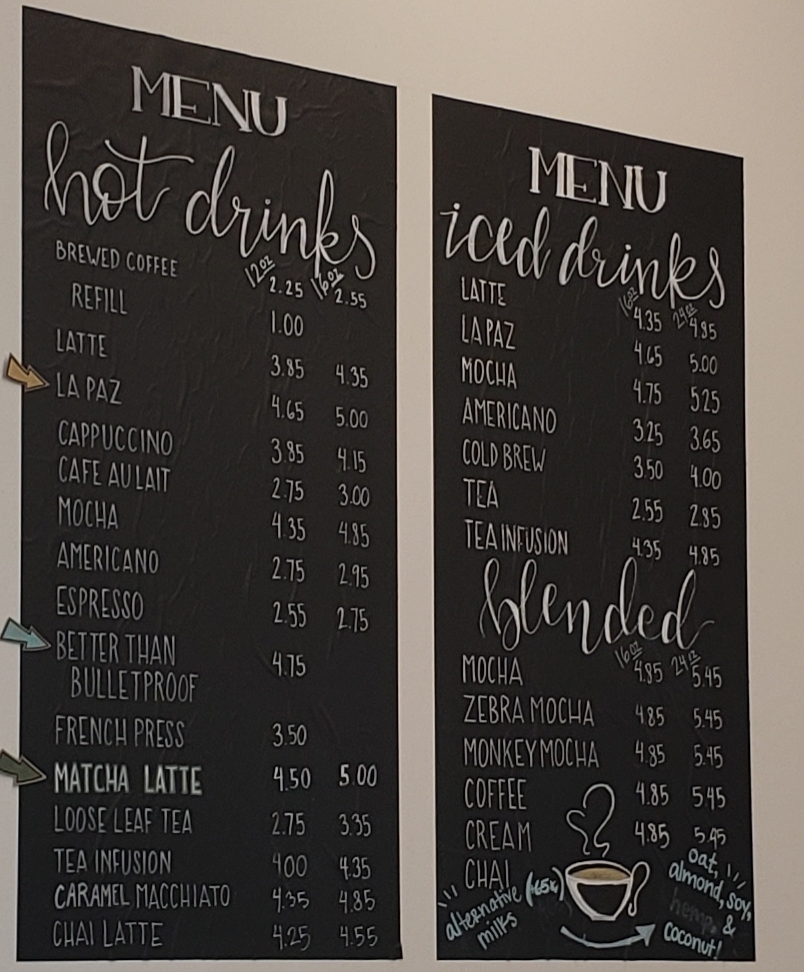 MENU
hot drinks
12oz 16oz
BREWED COFFEE 2.25 2.55
REFILL 1.00
LATTE 3.85 4.35
LA PAZ 4.65 5.00
CAPPUCCINO 3.85 4.15
CAFE AU LAIT 2.75 3.00
MOCHA 4.35 4.85
AMERICANO 2.75 2.95
ESPRESSO 2.55 2.75
BETTER THAN
BULLETPROOF 4.75
FRENCH PRESS 3.50
MATCHA LATTE 4.50 5.00
LOOSE LEAF TEA 2.75 3.35
TEA INFUSION 400 4.35
CARAMEL MACCHIATO 4.35 4.85
CHAI LATTE 4.25 4.55
MENU
iced drinks
16oz 24oz
LATTE 4.35 4.85
LA PAZ 4.65 5.00
MOCHA 4.75 525
AMERICANO 3.25 3.65
COLD BREW 3.50 4.00
TEA 2.55 2.85
TEA INFUSION 4.35 4.85
blended
16oz 24oz
MOCHA 4.85 5.45
ZEBRA MOCHA 4.85 5.45
MONKEY MOCHA 4.85 5.45
COFFEE 4.85 545
CREAM 4.85 5.45
CHAI
alternative
milks
oat,
almond, soy,
hemp, &
coconut!